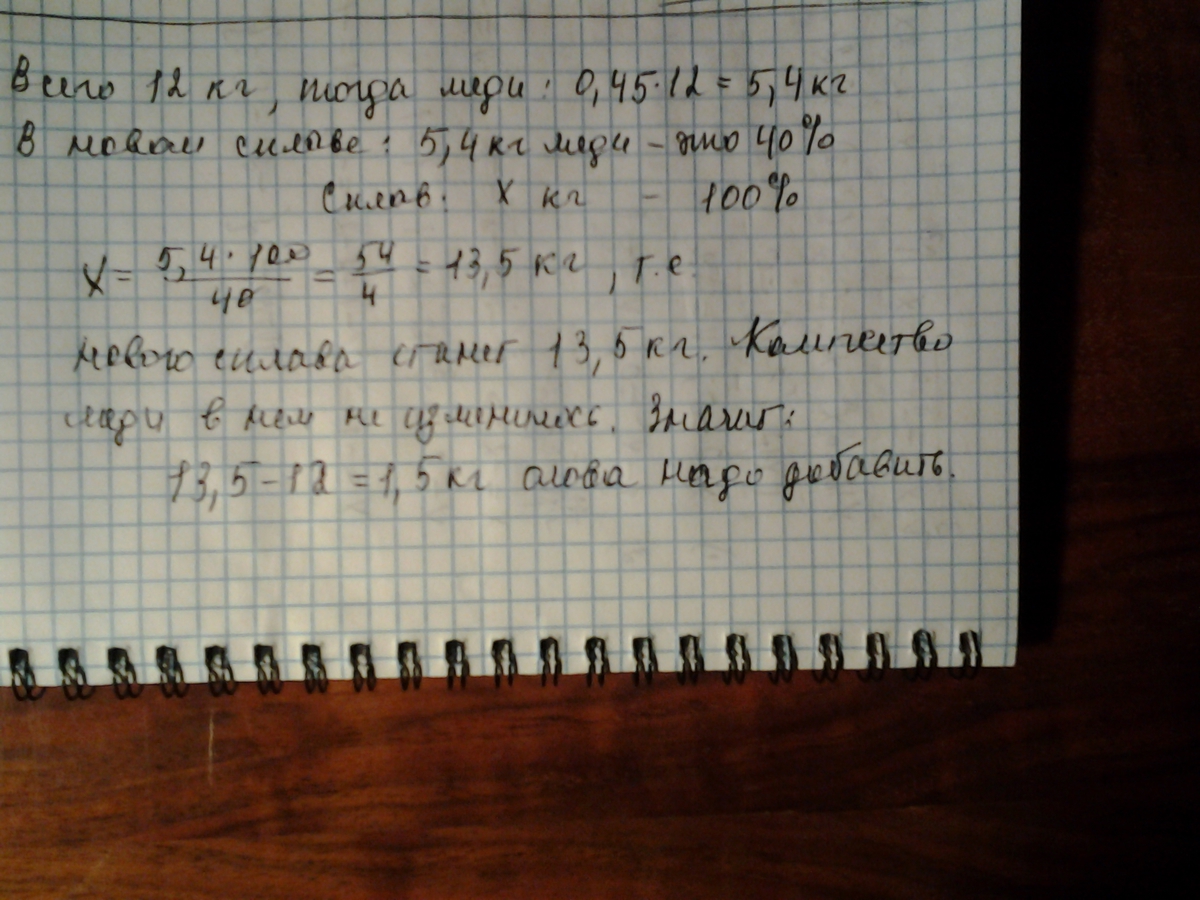 Всего 12 кг, тогда меди: 0,45·12 = 5,4 кг
В новом сплаве: 5,4 кг меди - это 40%
Сплав: X кг - 100%
X = 5,4·100/40 = 54/4 = 13,5 кг, т.е.
нового сплава станет 13,5 кг. Количество
меди в нем не изменилось. Значит:
13,5 - 12 = 1,5 кг олова надо добавить.